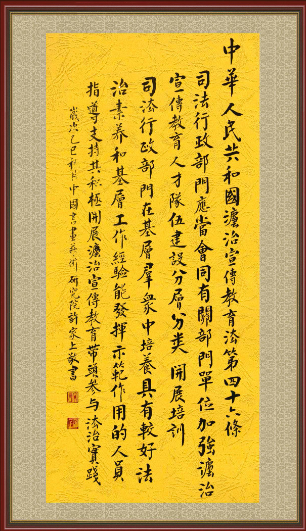 中華人民共和國灋治宣傳教育法第四十六條
司法行政部門應當會同有關部門單位加強灋治
宣傳教育人才隊伍建設分層分类開展培訓
司法行政部門在基層羣衆中培養具有較好法
治素养和基層工作經驗能發揮示範作用的人員
指導支持其积極開展灋治宣傳教育帶頭参与法治實踐
歲次乙巳秋月中國書畫藝術研究院許家上敬書